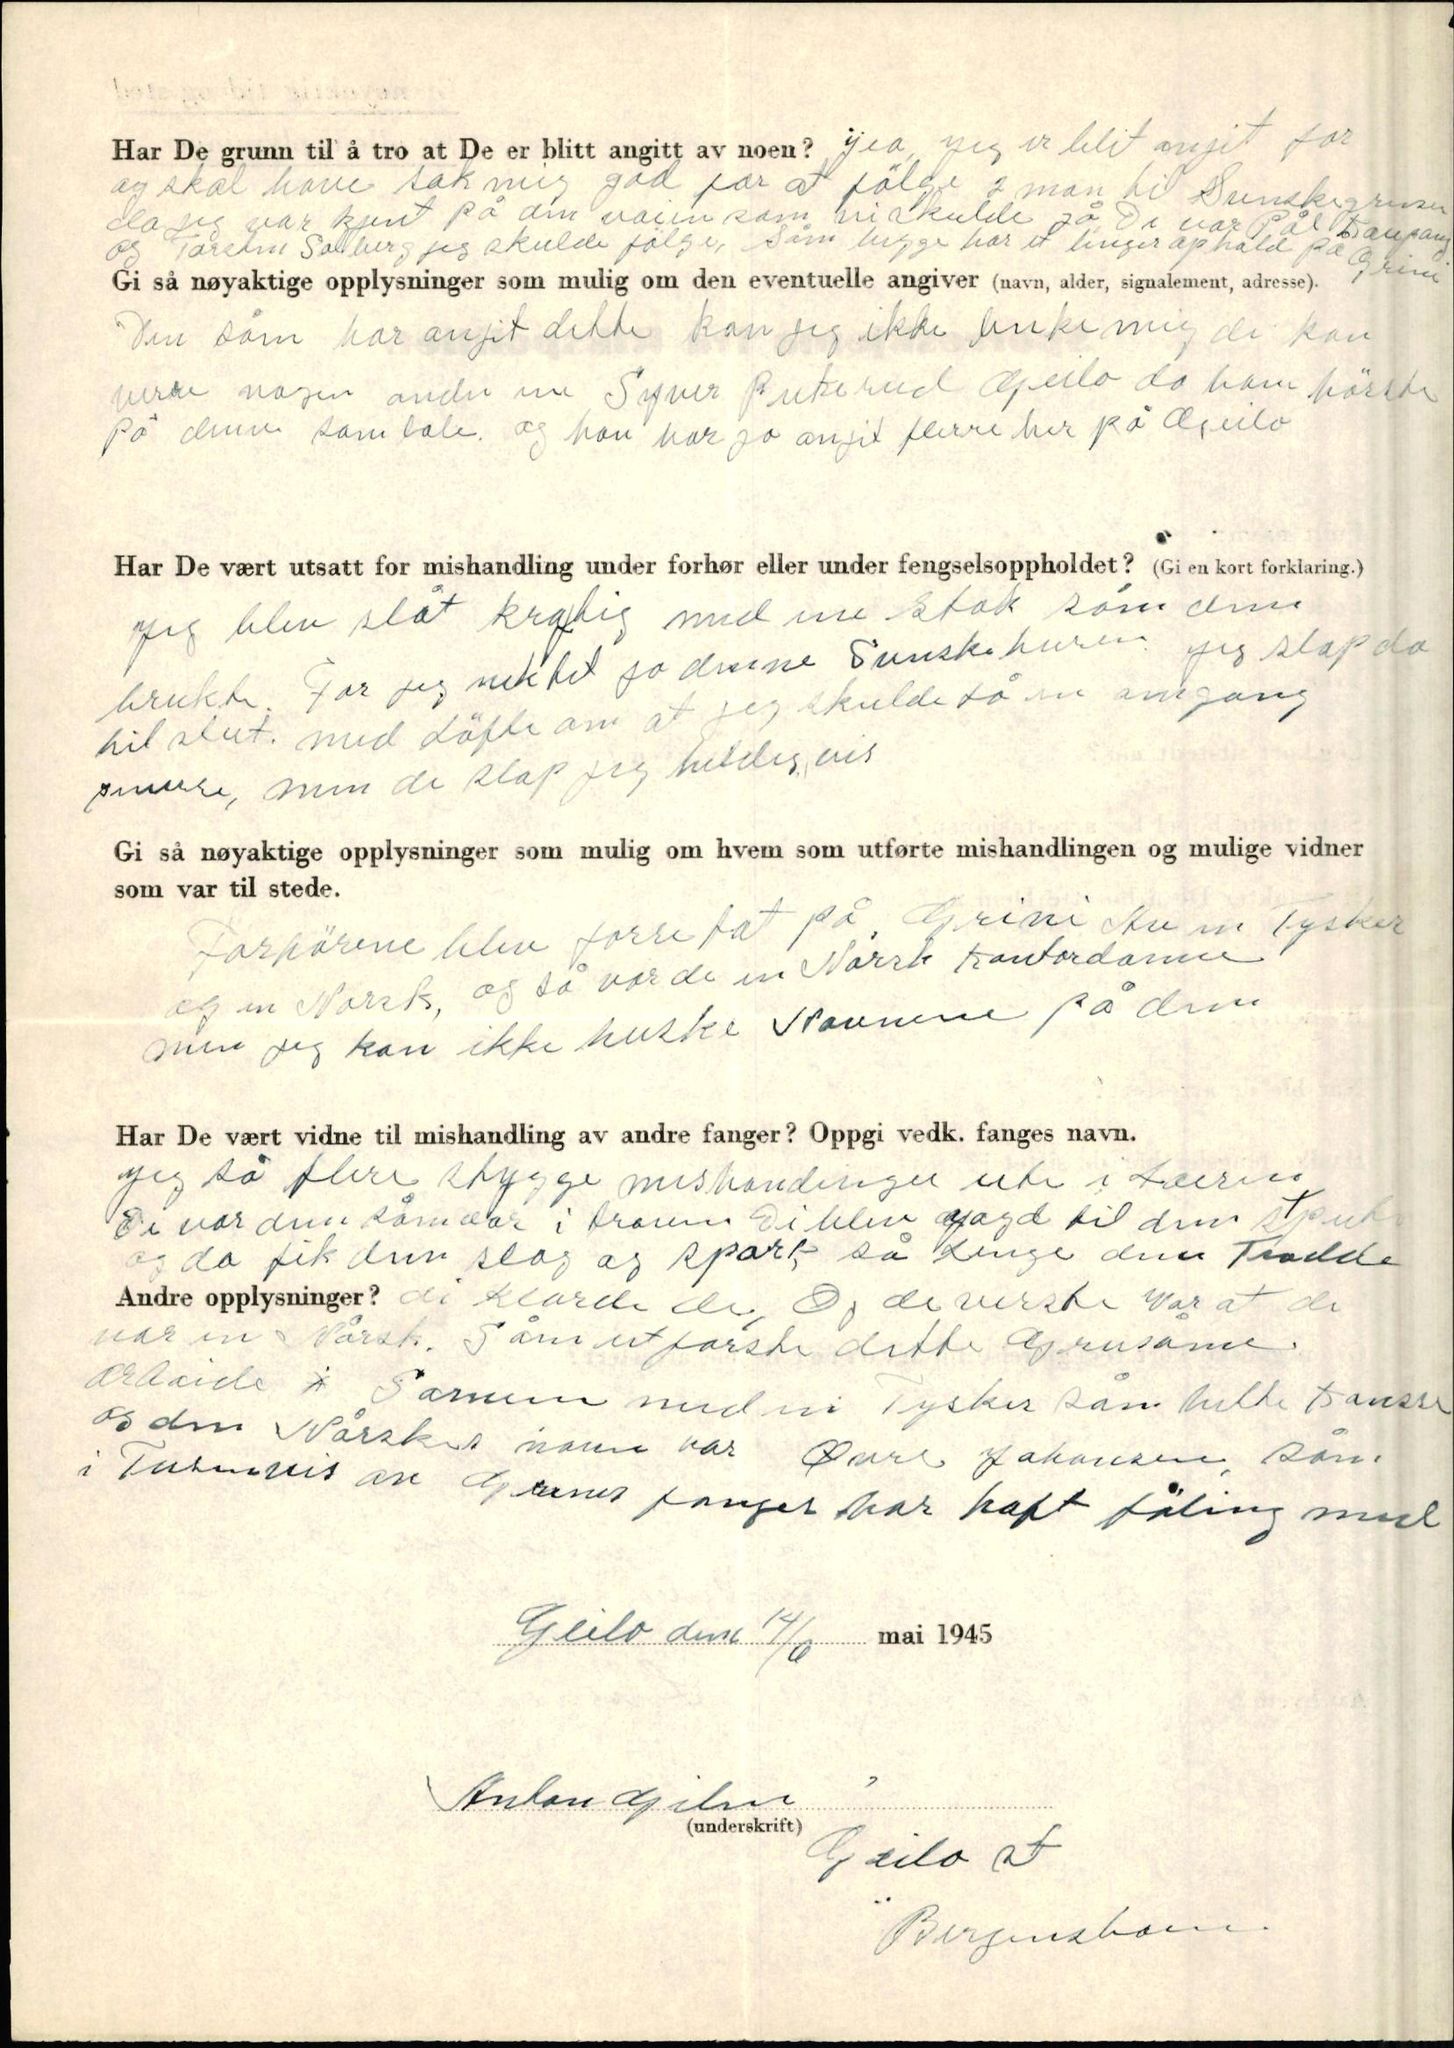 Har De grunn til å tro at De er blitt angitt av noen? Jea, jeg er blit anjit for
og skal have sak mig god for at fölge 2 man til Svenskegrusen
da jeg var kjent på den vaien som vi skulde gå. De var Pål
og Torstein Solberg jeg skulde fölge, Såm bygge har et linger ophald på Grini
Gi så nøyaktige opplysninger som mulig om den eventuelle angiver (navn, alder, signalement, adresse).
Den såm har anjit dette kan jeg ikke tenke mig de kan
verre nogen andre en Syver Geilo da ham hörste
på denne samtale. og han har jo anjit flerre her på Geilo
Har De vært utsatt for mishandling under forhør eller under fengselsoppholdet? (Gi en kort forklaring.)
Jeg blev slåt kraftig med en stok såm dem
brukte. For jeg nektet jo denne Svenske turen. jeg slap da
til slut. med Löfte om at jeg skulde få en omgang
men de slap jeg heldigvis
Gi så nøyaktige opplysninger som mulig om hvem som utførte mishandlingen og mulige vidner
som var til stede.
Forhörene blev forretat på Grini Av en Tysker
og en Norsk, og så var de en Norsk kontordamme
men jeg kan ikke huske Navnene på dem
Har De vært vidne til mishandling av andre fanger? Oppgi vedk. fanges navn.
Jeg så flere stygge mishandinger ute i Leeren
De var dem såm var i De blev jagd til dem
og da fik dem slag og spark så Lenge dem Trodde
Andre opplysninger? di klarde de, Og de verste var at de
var en Nårsk. Såm utförste dette Grusåme
arbeide Samen med en Tysker såm hette
og den Nårskes navn var Johansen, såm
i Tusenvis av fanger har haft föling med
Geilo den 14/6 mai 1945
Anton
(underskrift)
Geilo st
Bergensbanen